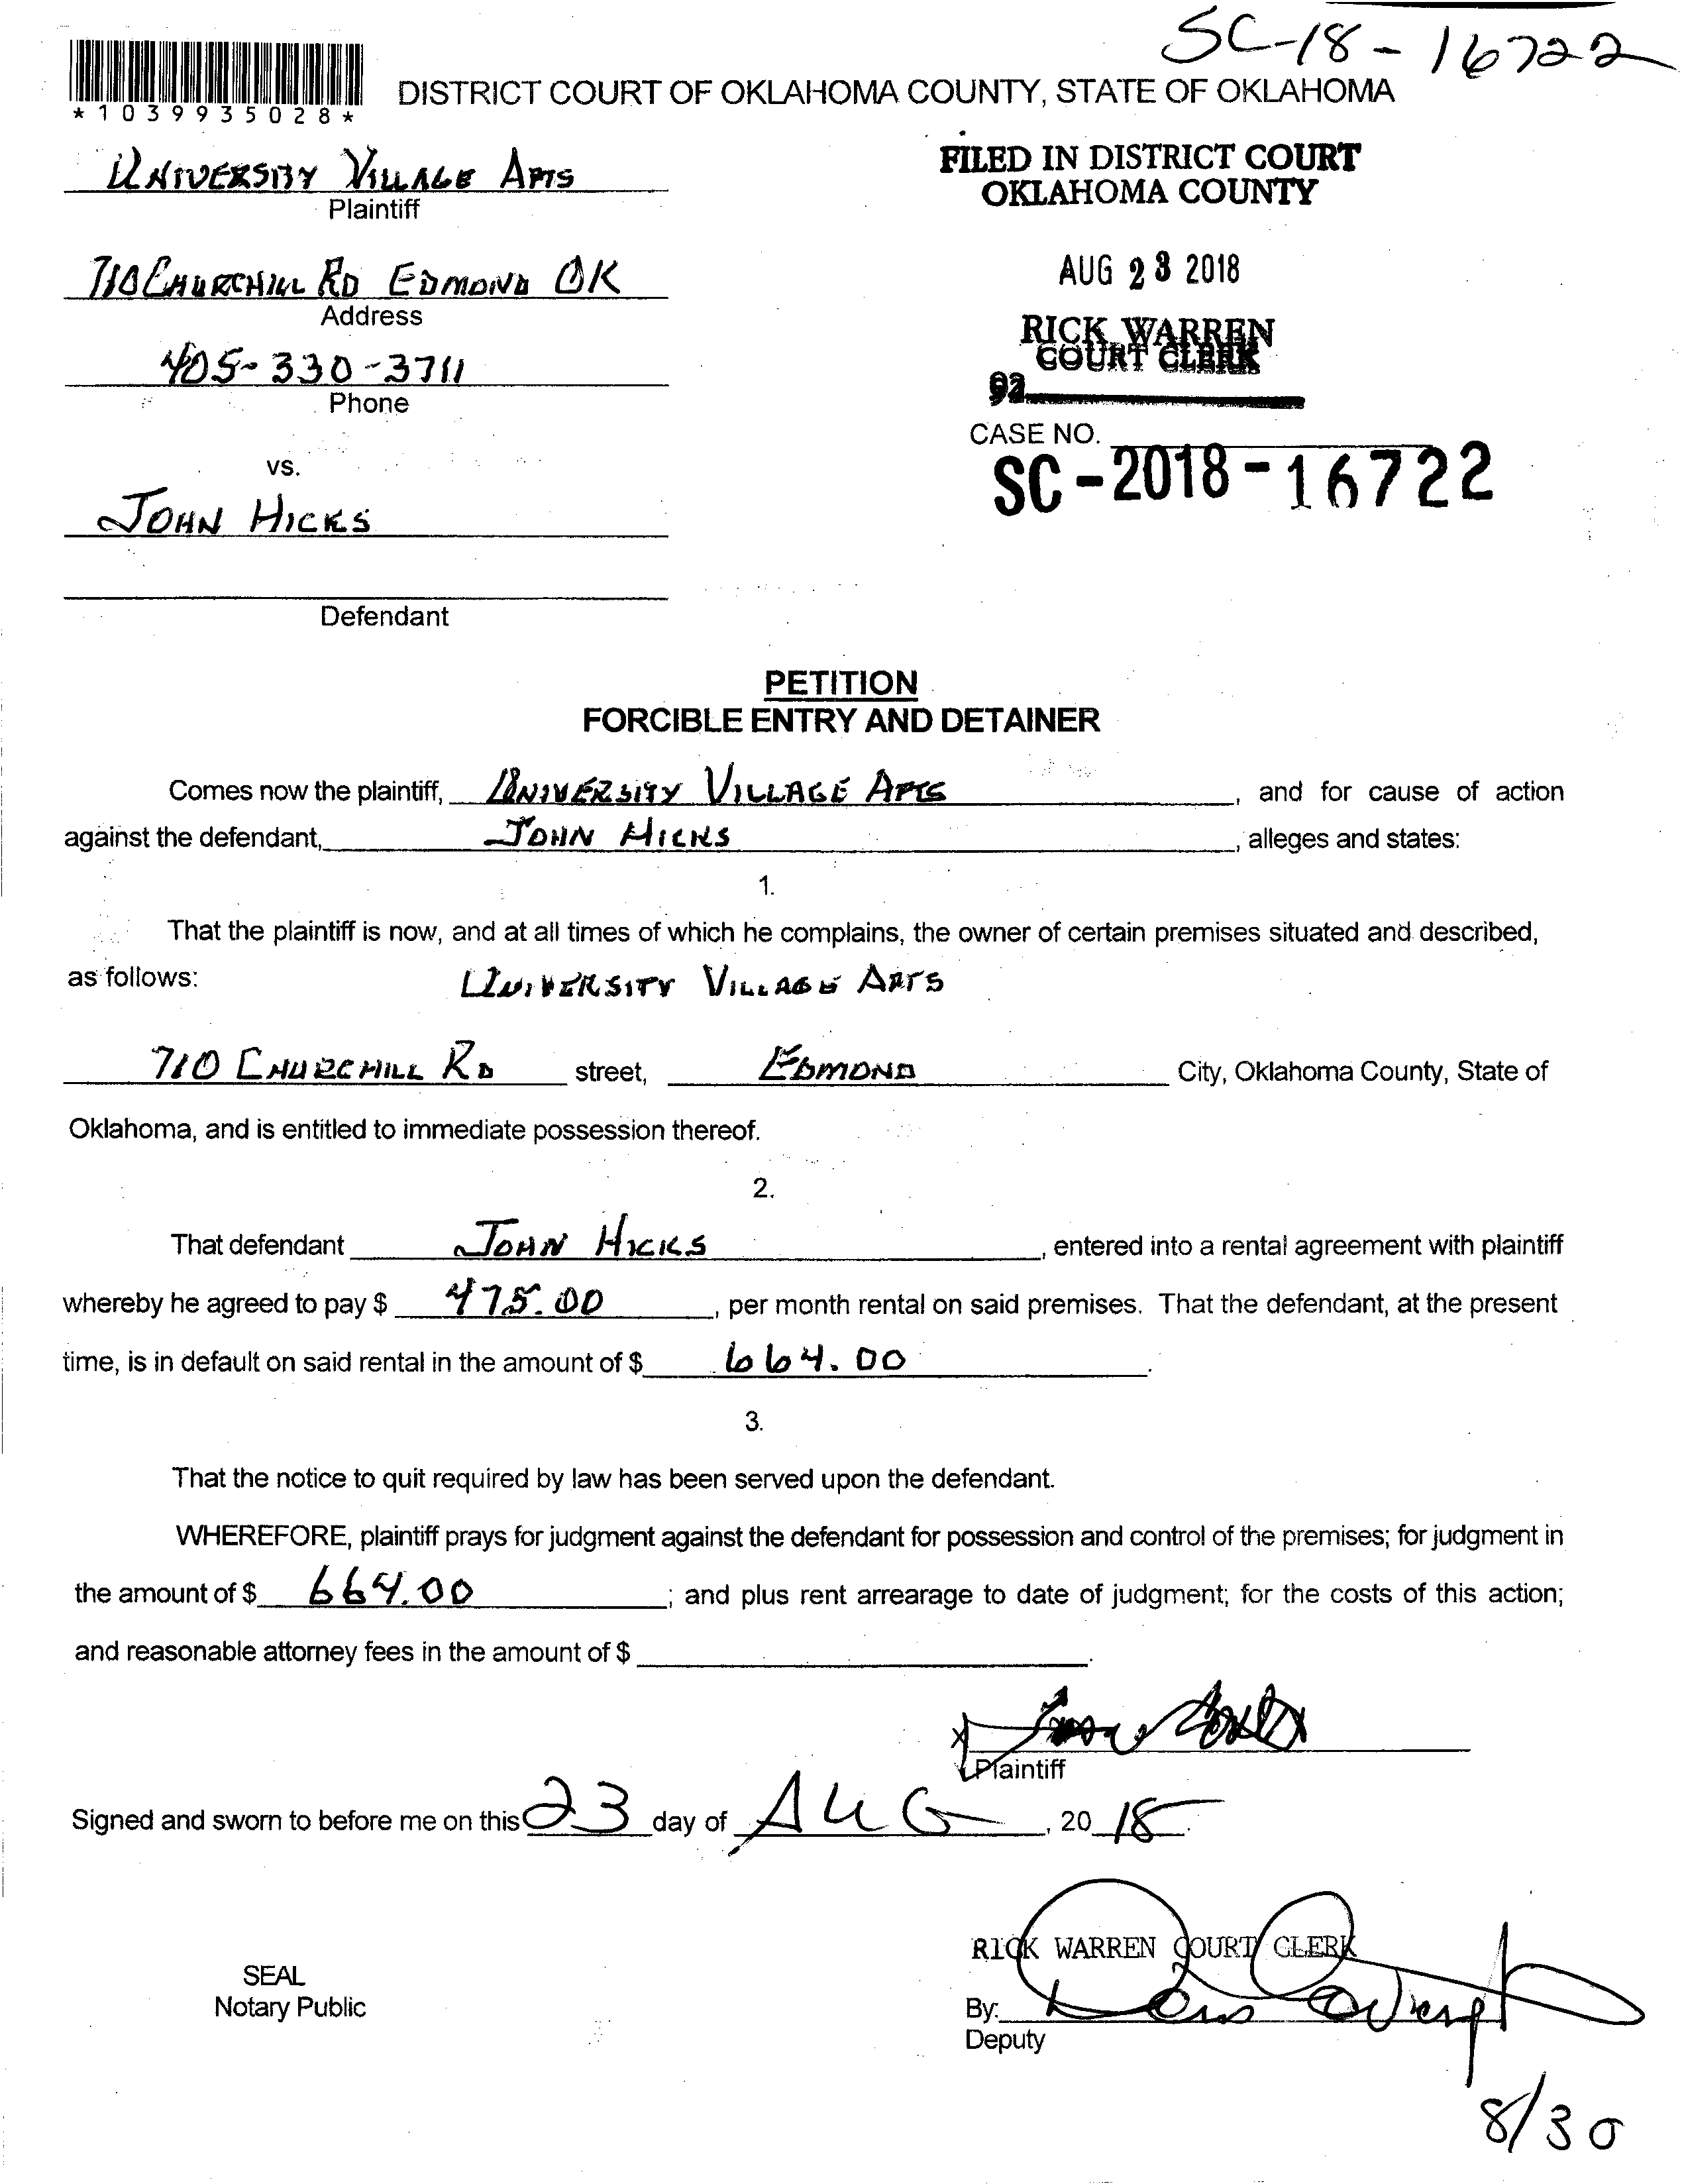 SC-18-16722
*1039935028*
DISTRICT COURT OF OKLAHOMA COUNTY, STATE OF OKLAHOMA
UNIVERSITY VILLAGE APTS
Plaintiff
FILED IN DISTRICT COURT
OKLAHOMA COUNTY
710 CHURCHILL RD EDMOND OK
Address
AUG 23 2018
RICK WARREN
COURT CLERK
405-330-3711
Phone
CASE NO.
SC-2018-16722
vs.
JOHN HICKS
Defendant
PETITION
FORCIBLE ENTRY AND DETAINER
Comes now the plaintiff, UNIVERSITY VILLAGE APTS, and for cause of action
against the defendant, JOHN HICKS, alleges and states:
1.
That the plaintiff is now, and at all times of which he complains, the owner of certain premises situated and described,
as follows: UNIVERSITY VILLAGE APTS
710 CHURCHILL RD street, EDMOND City, Oklahoma County, State of
Oklahoma, and is entitled to immediate possession thereof.
2.
That defendant JOHN HICKS, entered into a rental agreement with plaintiff
whereby he agreed to pay $ 475.00, per month rental on said premises. That the defendant, at the present
time, is in default on said rental in the amount of $ 664.00.
3.
That the notice to quit required by law has been served upon the defendant.
WHEREFORE, plaintiff prays for judgment against the defendant for possession and control of the premises; for judgment in
the amount of $ 664.00; and plus rent arrearage to date of judgment; for the costs of this action;
and reasonable attorney fees in the amount of $ .
X
Plaintiff
Signed and sworn to before me on this 23 day of AUG, 2018.
RICK WARREN COURT CLERK
SEAL
Notary Public
By:
Deputy
8/30